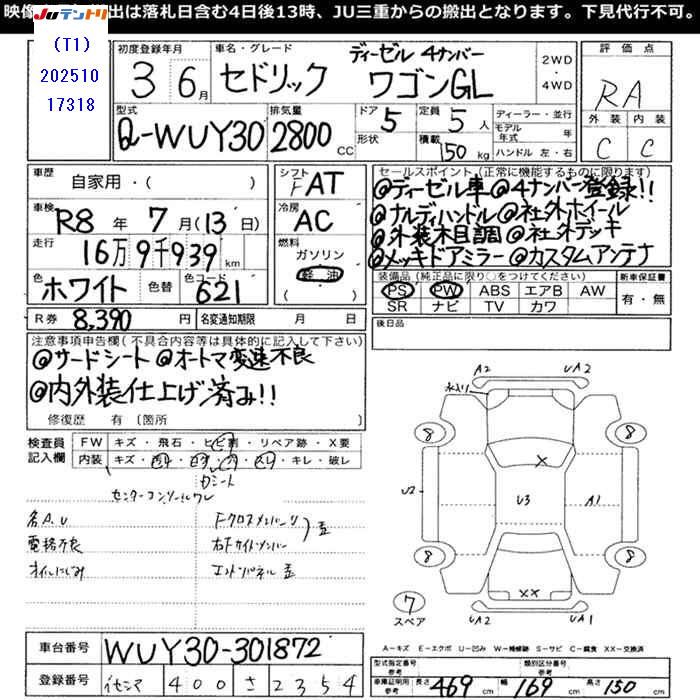 映像
出は落札日含む4日後13時、JU三重からの搬出となります。下見代行不可。
JUテントリ
(T1)
202510
17318
初度登録年月
3 6月
車名・グレード
セドリック ディーゼル 4ナンバー
ワゴンGL
2WD
・
4WD
評価点
RA
外装 内装
C C
型式
Q-WUY30
排気量
2800 CC
ドア 5
形状
定員 5 人
積載 150 kg
ディーラー・並行
モデル年式 年
ハンドル 左・右
車歴
自家用・( )
車検
R8 年 7 月(13 日)
走行
16万9千939 km
色
ホワイト
色替
色コード
621
シフト
FAT
冷房
AC
燃料
ガソリン
軽油
( )
セールスポイント(正常に機能するものに限ります)
@ディーゼル車@4ナンバー登録!!
@ナルディハンドル@社外ホイール
@外装木目調@社外デッキ
@メッキドアミラー@カスタムアンテナ
装備品(純正品に限り○をつけてください)
PS PW ABS エアB AW
SR ナビ TV カワ
新車保証書
有・無
R券 8,390 円
名変通知期限 月 日
後日品
注意事項申告欄(不具合内容等は具体的に記入して下さい)
@サードシート@オートマ変速不良
@内外装仕上げ済み!!
修復歴 有 〔箇所 〕
検査員
記入欄
FW キズ・飛石・ヒビ割・リペア跡・X要
内装 キズ・
スレ・キレ・破レ
シート
センターコンソールワレ
オイルにじみ
Fクロスメンバー
右Fサイドメンバー
水入り
A2
UA2
8
8
U2
X
U3
A1
8
8
XX
7
スペア
UA2
UA1
A=キズ E=エクボ U=凹み W=補修跡 S=サビ C=腐食 XX=交換済
車台番号
WUY30-301872
登録番号
400 さ 2354
型式指定番号
参考
類別区分番号
参考
車庫証明用
参考
長さ 469 cm 幅 169 cm 高さ 150 cm